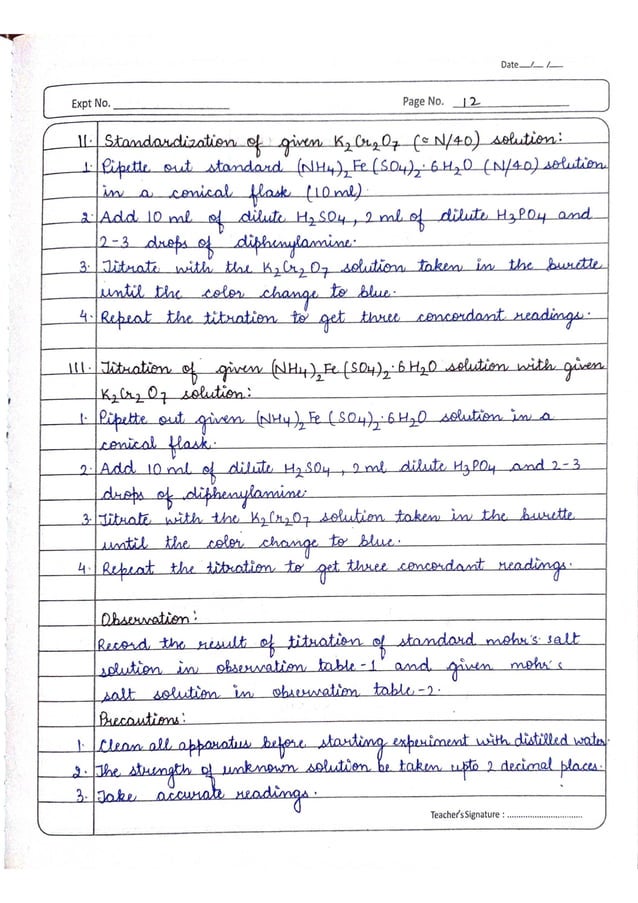 Date __/__ /__
Expt No. ____________ Page No. 12
II. Standardization of given K₂Cr₂O₇ (≈ N/40) solution:
1. Pipette out standard (NH₄)₂Fe(SO₄)₂·6H₂O (N/40) solution
in a conical flask (10 ml).
2. Add 10 ml of dilute H₂SO₄, 2 ml of dilute H₃PO₄ and
2-3 drops of diphenylamine.
3. Titrate with the K₂Cr₂O₇ solution taken in the burette
until the color change to blue.
4. Repeat the titration to get three concordant readings.
III. Titration of given (NH₄)₂Fe(SO₄)₂·6H₂O solution with given
K₂Cr₂O₇ solution:
1. Pipette out given (NH₄)₂Fe(SO₄)₂·6H₂O solution in a
conical flask.
2. Add 10 ml of dilute H₂SO₄, 2 ml dilute H₃PO₄ and 2-3
drops of diphenylamine.
3. Titrate with the K₂Cr₂O₇ solution taken in the burette
until the color change to blue.
4. Repeat the titration to get three concordant readings.
Observation:
Record the result of titration of standard mohr's salt
solution in observation table-1 and given mohr's
salt solution in observation table-2.
Precautions:
1. Clean all apparatus before starting experiment with distilled water.
2. The strength of unknown solution be taken upto 2 decimal places.
3. Take accurate readings.
Teacher's Signature : ................................